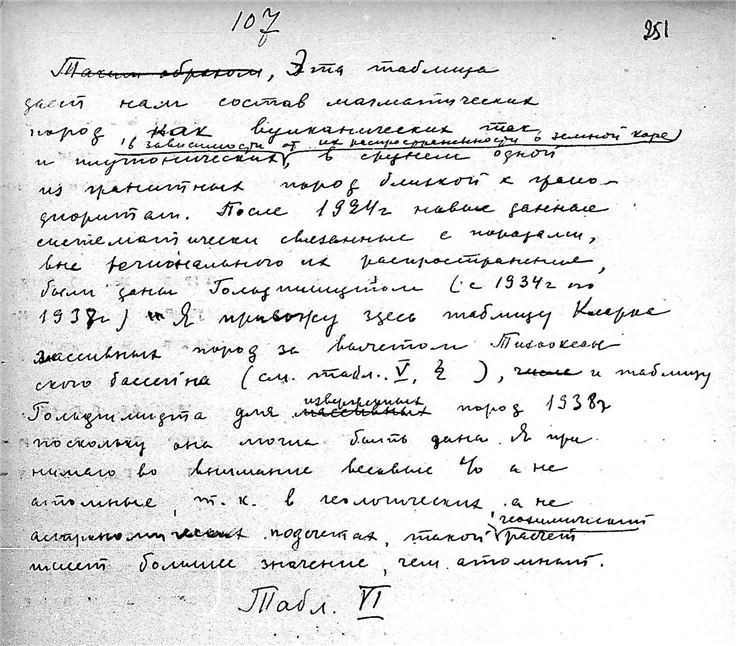 107
251
Таким образом, Эта таблица
дает нам состав магматических
пород как вулканических так
в зависимости от их распространенности в земной коре
и плутонических, в среднем одной
из гранитных пород близкой к грано-
диоритам. После 1924г новые данные
систематически связанные с породами,
вне регионального их распространение,
были даны Гольдшмидтом (с 1934г по
1937г) Я привожу здесь таблицу Кларка
массивных пород за вычетом Тихоокеан
ского бассейна (см. табл. V, 2), и таблицу
изверженных
Гольдшмидта для массивных пород 1938г
поскольку она могла быть дана. Я при
нимаю во внимание весовые % а не
атомные, т.к. в геологических, а не
геохимический
астрономических подсчетах, такой расчет
имеет большее значение, чем атомный.
Табл. VI